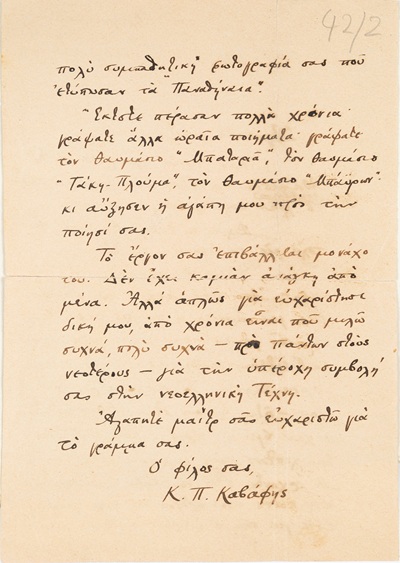 42/2
πολὺ συμπαθητικὴ φωτογραφία σας ποὺ
ἐτύπωσαν τὰ "Παναθήναια".
Ἔκτοτε πέρασαν πολλὰ χρόνια·
γράψατε ἄλλα ὡραῖα ποιήματα· γράψατε
τὸν θαυμάσιο "Μπαταριᾶ", τὸν θαυμάσιο
"Τάκη-Πλούμα", τὸν θαυμάσιο "Μπάϋρον"·
κι αὔξησεν ἡ ἀγάπη μου πρὸς τὴν
ποίησί σας.
Τὸ ἔργον σας ἐπιβάλλεται μονάχο
του. Δὲν ἔχει καμιὰν ἀνάγκη ἀπὸ
μένα. Ἀλλὰ ἁπλῶς γιὰ εὐχαρίστησι
δική μου, ἀπὸ χρόνια εἶναι ποὺ μιλῶ
συχνά, πολὺ συχνὰ — πρὸ πάντων στοὺς
νεοτέρους — γιὰ τὴν ὑπέροχη συμβολή
σας στὴν νεοελληνικὴ Τέχνη.
Ἀγαπητὲ μαὶτρ σᾶς εὐχαριστῶ γιὰ
τὸ γράμμα σας.
Ὁ φίλος σας,
Κ. Π. Καβάφης